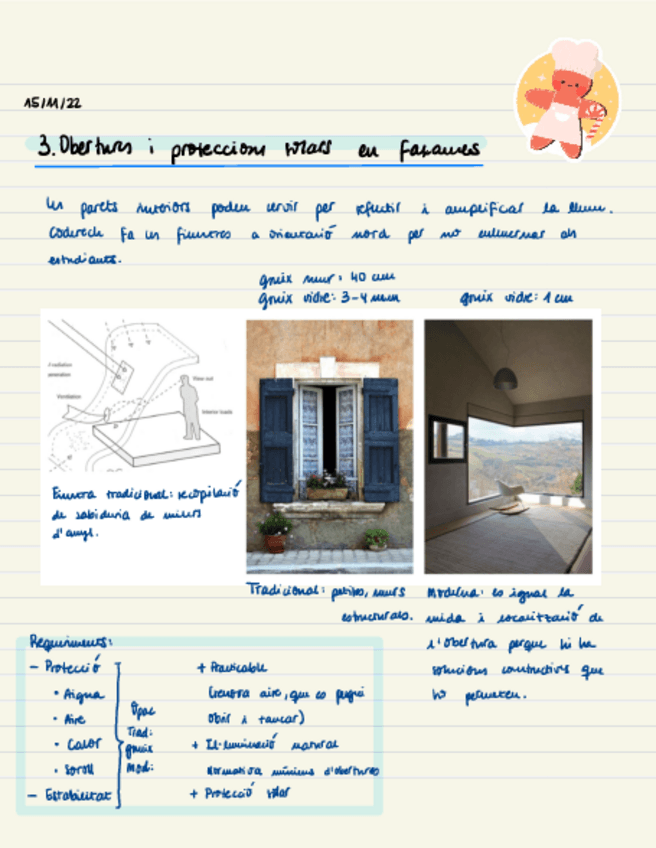 15/11/22
3. Obertures i proteccions solars en façanes
Les parets interiors poden servir per reflectir i amplificar la llum.
Coderch fa les finestres a orientació nord per no enlluernar als
estudiants.
gruix mur: 40 cm
gruix vidre: 3-4 mm
gruix vidre: 1 cm
radiation
Ventilation
View out
Interior loads
Finestra tradicional: recopilació
de sabiduria de milers
d'anys.
Tradicional: petites, murs
estructurals.
Moderna: és igual la
mida i localització de
l'obertura perquè hi ha
solucions constructives que
ho permeten.
Requeriments:
- Protecció
• Aigua
• Aire
• Calor
• Soroll
- Estabilitat
Opac
Trad:
gruix
Mod:
+ Practicable
(entra aire, que es pugui
obrir i tancar)
+ Il·luminació natural
Normativa mínims d'obertures
+ Protecció solar